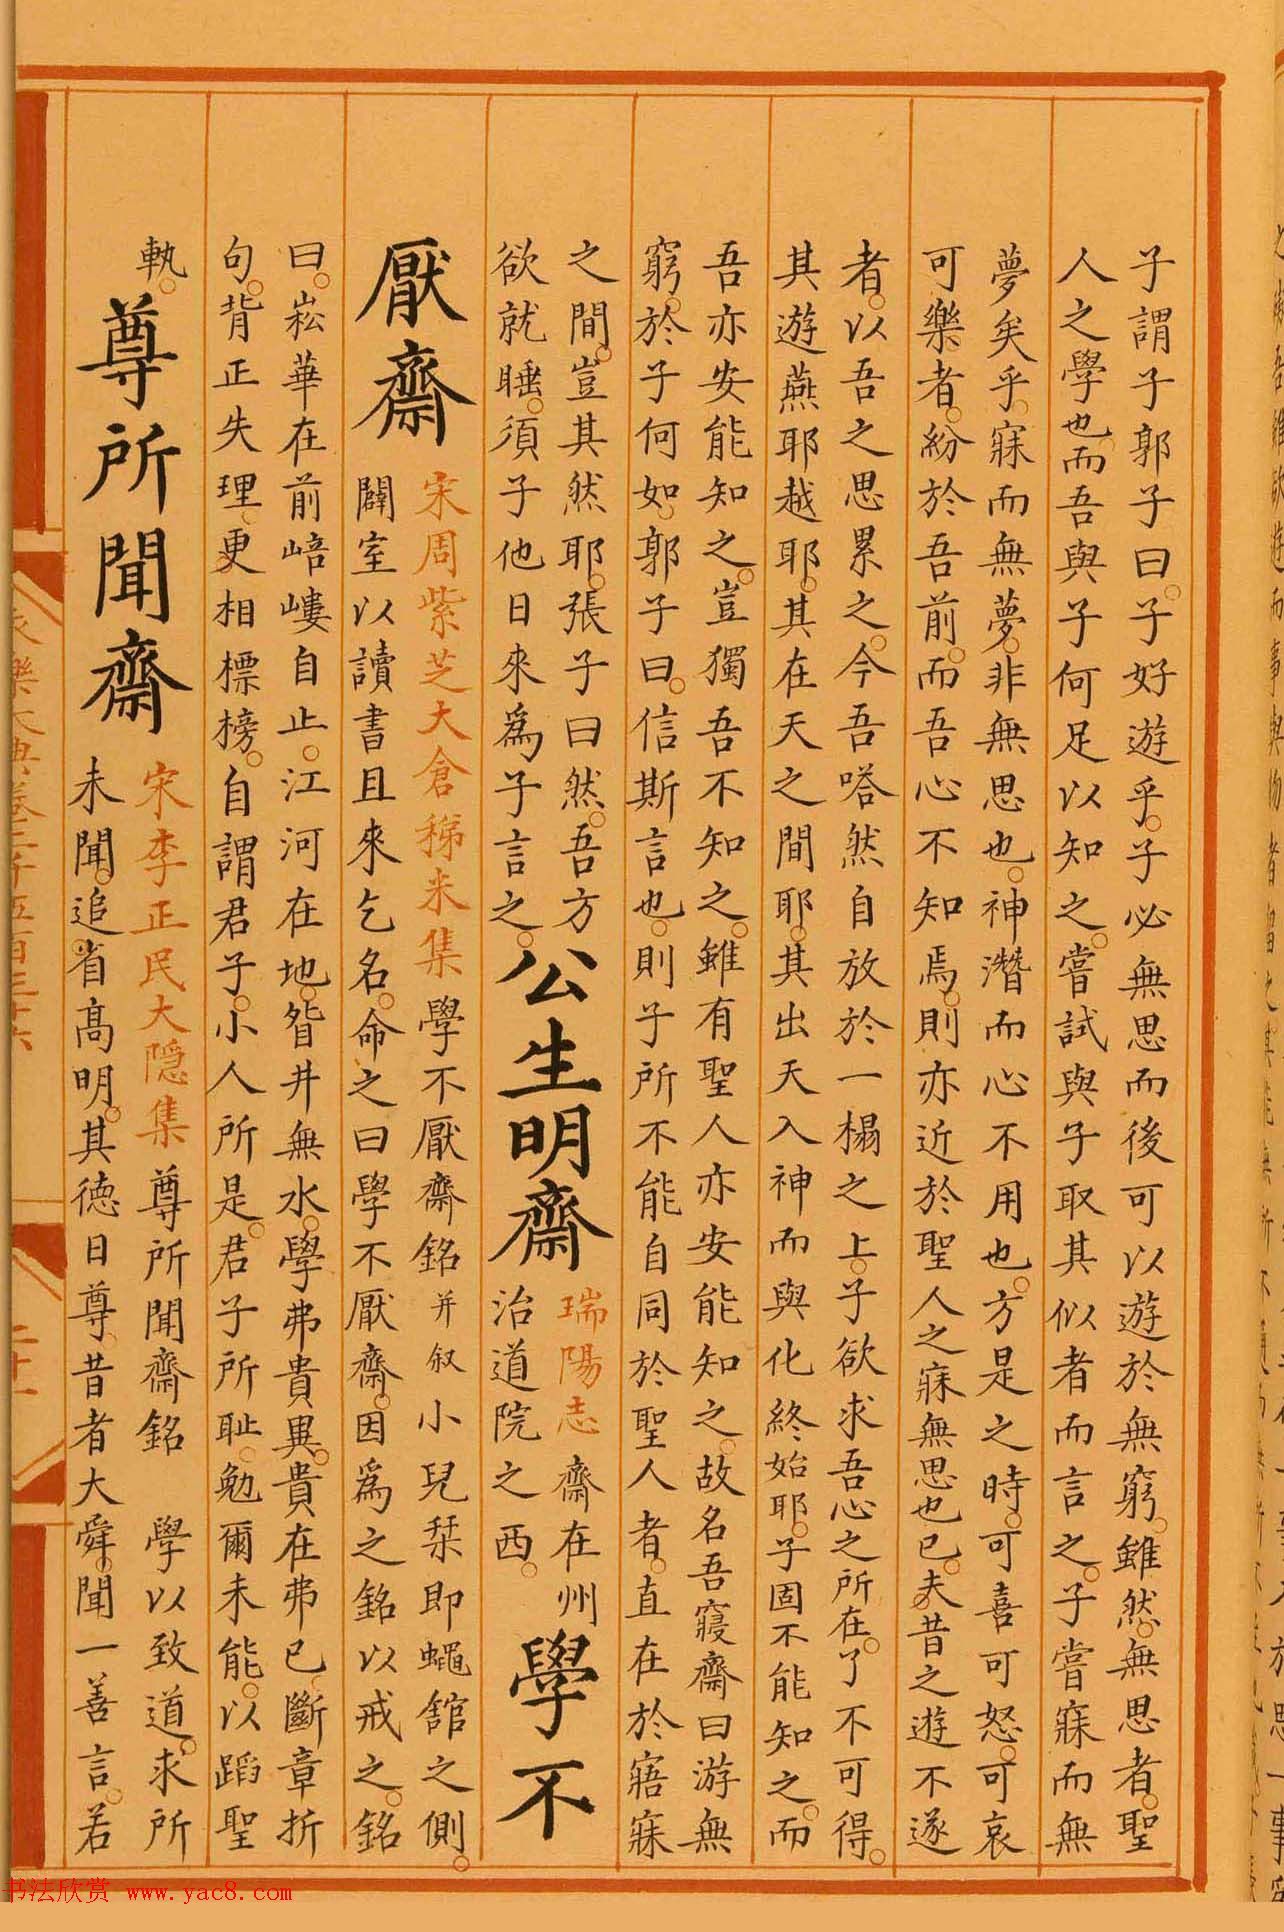 子謂子郭子曰子好遊乎子必無思而後可以遊於無窮雖然無思者聖
人之學也而吾與子何足以知之嘗試與子取其似者而言之子嘗寐而無
夢矣乎寐而無夢非無思也神潛而心不用也方是之時可喜可怒可哀
可樂者紛於吾前而吾心不知焉則亦近於聖人之寐無思也已夫昔之遊不遂
者以吾之思累之今吾嗒然自放於一榻之上子欲求吾心之所在了不可得
其遊燕耶越耶其在天之間耶其出天入神而與化終始耶子固不能知之而
吾亦安能知之豈獨吾不知之雖有聖人亦安能知之故名吾寢齋曰游無
窮於子何如郭子曰信斯言也則子所不能自同於聖人者直在於寤寐
之間豈其然耶張子曰然吾方
欲就睡須子他日來爲子言之
公生明齋
瑞陽志 齋在州
治道院之西
學不
厭齋
宋周紫芝大倉稊米集 學不厭齋銘并叙 小兒栞即蠅舘之側
闢室以讀書且來乞名命之曰學不厭齋因爲之銘以戒之銘
曰崧華在前峿嶁自止江河在地眢井無水學弗貴異貴在弗已斷章折
句背正失理更相標榜自謂君子小人所是君子所耻勉爾未能以蹈聖
執
尊所聞齋
宋李正民大隱集 尊所聞齋銘 學以致道求所
未聞追省高明其德日尊昔者大舜聞一善言若
永樂大典卷二千五百三十六
二十一
书法欣赏 www.yac8.com